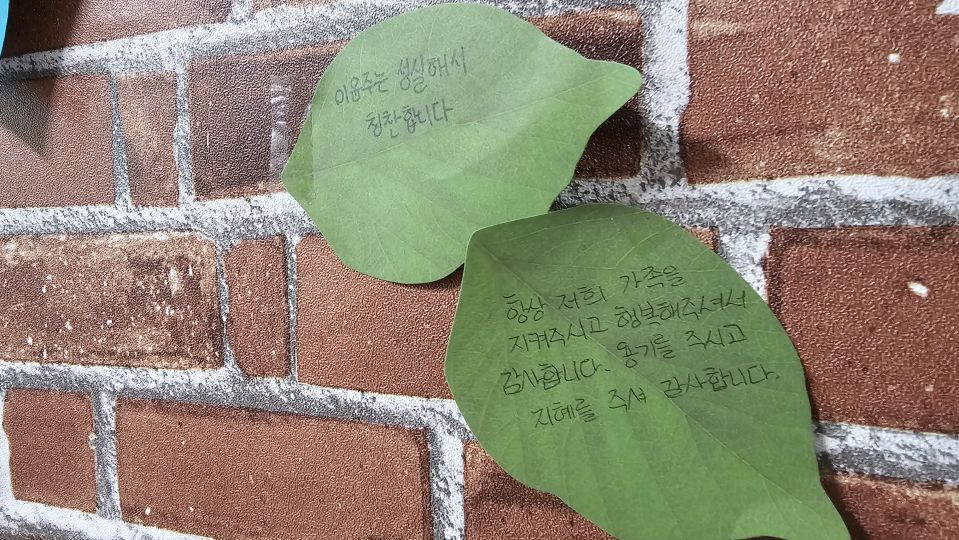 이윤주는 성실해서
칭찬합니다
항상 저희 가족을
지켜주시고 행복해주셔서
감사합니다. 용기를 주시고
지혜를 주셔 감사합니다.